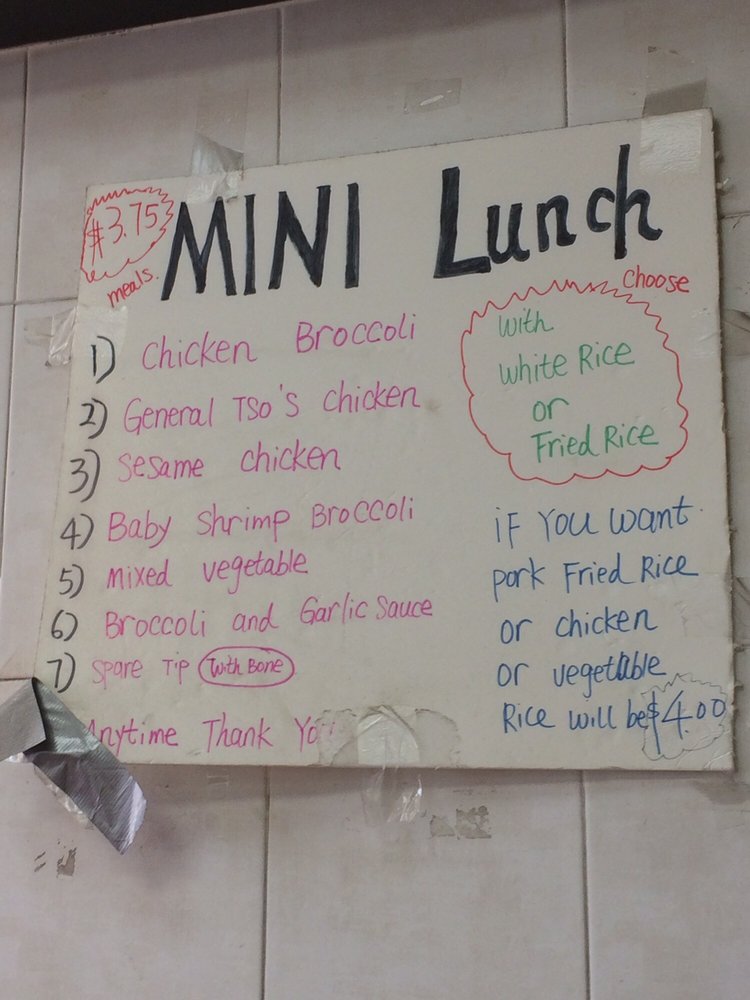 $3.75
meals.
MINI Lunch
1) Chicken Broccoli
2) General TSo's chicken
3) Sesame chicken
4) Baby Shrimp Broccoli
5) mixed vegetable
6) Broccoli and Garlic Sauce
7) Spare Tip (With Bone)
Anytime Thank You
choose
with
white Rice
or
Fried Rice
if You want
pork Fried Rice
or chicken
or vegetable
Rice will be $4.00